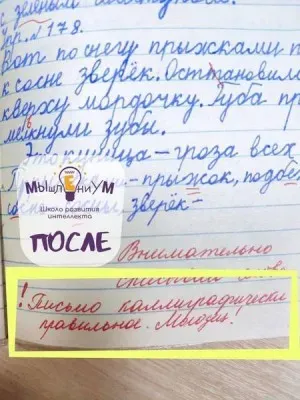 с зелёным
Упр. № 178.
Вот по снегу прыжками п
к сосне зверёк. Остановил
кверху мордочку. Губа пр
мелкнули зубы.
Это куница – гроза всех
прыжок, подбе
зверёк –
МыШлЕниУМ
Школа развития
интеллекта
ПОСЛЕ
Внимательно
! Письмо каллиграфически
правильное. Молодец.